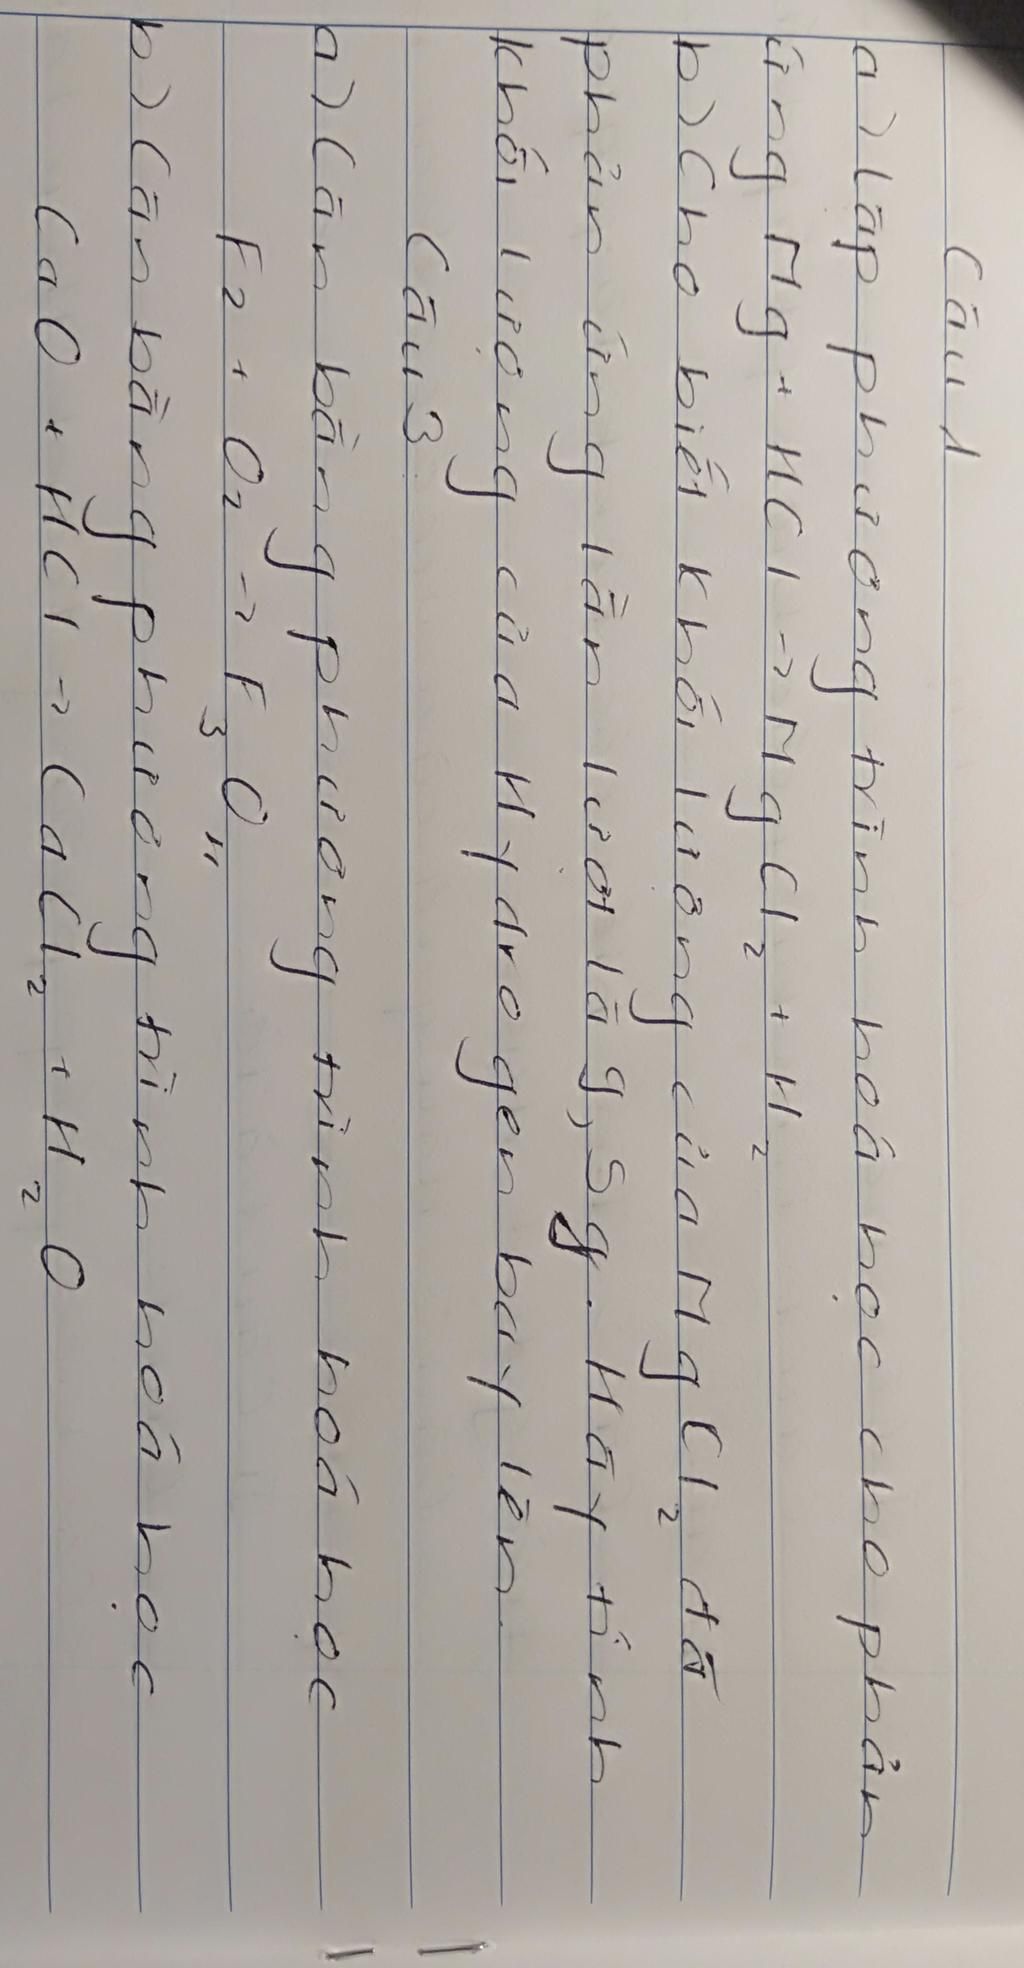 Câu 1
a) Lập phương trình hoá học cho phản
ứng Mg + HCl -> MgCl2 + H2
b) Cho biết khối lượng của MgCl2 đã
phản ứng lần lượt là 9,5g. Hãy tính
khối lượng của Hydrogen bay lên.
Câu 3
a) Cân bằng phương trình hoá học
F2 + O2 -> F3O4
b) Cân bằng phương trình hoá học
CaO + HCl -> CaCl2 + H2O